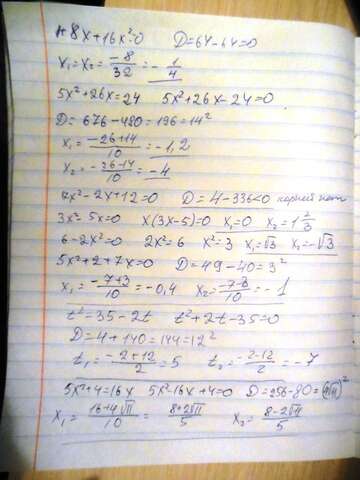 1+8x+16x²=0 D=64-64=0
x₁=x₂=-8/32=-1/4
5x²+26x=24 5x²+26x-24=0
D=676-480=196=14²
x₁=-26+14/10=-1,2
x₂=-26-14/10=-4
7x²-2x+12=0 D=4-336<0 корней нет
3x²-5x=0 x(3x-5)=0 x₁=0 x₂=1 2/3
6-2x²=0 2x²=6 x²=3 x₁=√3 x₂=-√3
5x²+2+7x=0 D=49-40=3²
x₁=-7+3/10=-0,4 x₂=-7-3/10=-1
t²=35-2t t²+2t-35=0
D=4+140=144=12²
t₁=-2+12/2=5 t₂=-2-12/2=-7
5x²+4=16x 5x²-16x+4=0 D=256-80=(4√11)²
x₁=16+4√11/10=8+2√11/5 x₂=8-2√11/5